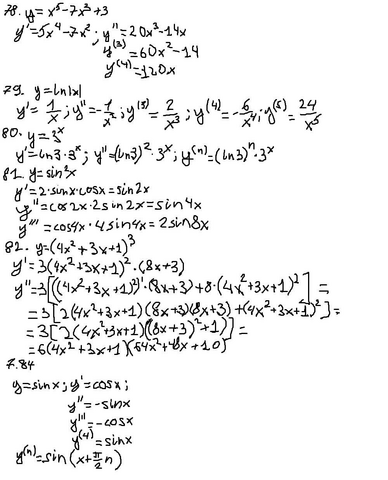 78. y = x⁵-7x³+3
y' = 5x⁴-7x²; y'' = 20x³-14x
y⁽³⁾ = 60x²-14
y⁽⁴⁾ = 120x
79. y = ln|x|
y' = 1/x; y'' = -1/x²; y⁽³⁾ = 2/x³; y⁽⁴⁾ = -6/x⁴; y⁽⁵⁾ = 24/x⁵
80. y = 3ˣ
y' = ln3·3ˣ; y'' = (ln3)²·3ˣ; y⁽ⁿ⁾ = (ln3)ⁿ·3ˣ
81. y = sin²x
y' = 2·sinx·cosx = sin2x
y'' = cos2x·2sin2x = sin4x
y''' = cos4x·4sin4x = 2sin8x
82. y = (4x²+3x+1)³
y' = 3(4x²+3x+1)²·(8x+3)
y'' = 3[((4x²+3x+1)²)'·(8x+3)+8·(4x²+3x+1)²] =
= 3[2(4x²+3x+1)(8x+3)(8x+3)+(4x²+3x+1)²] =
= 3[2(4x²+3x+1)((8x+3)²+1)] =
= 6(4x²+3x+1)(64x²+48x+10)
7.84
y = sinx; y' = cosx;
y'' = -sinx
y''' = -cosx
y⁽⁴⁾ = sinx
y⁽ⁿ⁾ = sin(x+π/2 n)